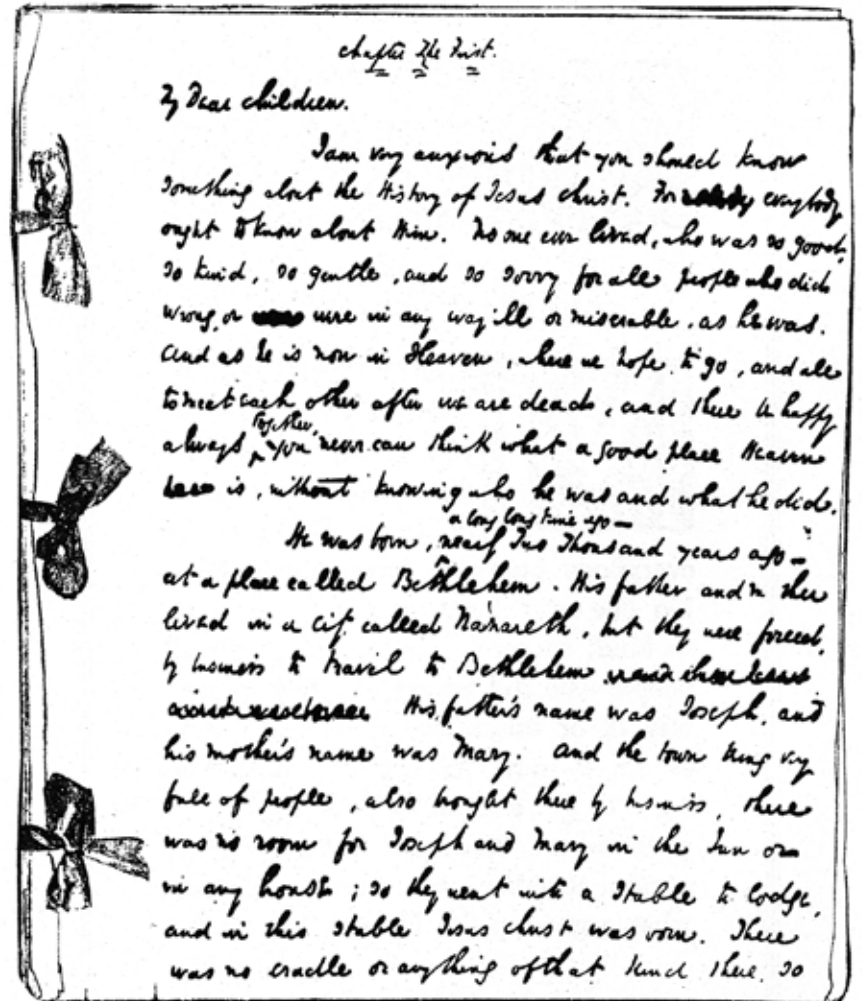 Chapter The First.
My Dear children.
I am very anxious that you should know
something about the History of Jesus Christ. For everybody
ought to know about Him. No one ever lived, who was so good,
so kind, so gentle, and so sorry for all people who did
wrong, or were in any way ill or miserable, as he was.
And as he is now in Heaven, where we hope to go, and all
to meet each other after we are dead, and there be happy
always together, you never can think what a good place Heaven
is, without knowing who he was and what he did.
He was born, a long long time ago — nearly Two Thousand years ago —
at a place called Bethlehem. His father and mother
lived in a city called Nazareth, but they were forced,
by business to travel to Bethlehem
His father's name was Joseph, and
his mother's name was Mary. And the town being very
full of people, also brought there by business, there
was no room for Joseph and Mary in the Inn or
in any house; so they went into a Stable to lodge,
and in this stable Jesus Christ was born. There
was no cradle or anything of that kind there, so